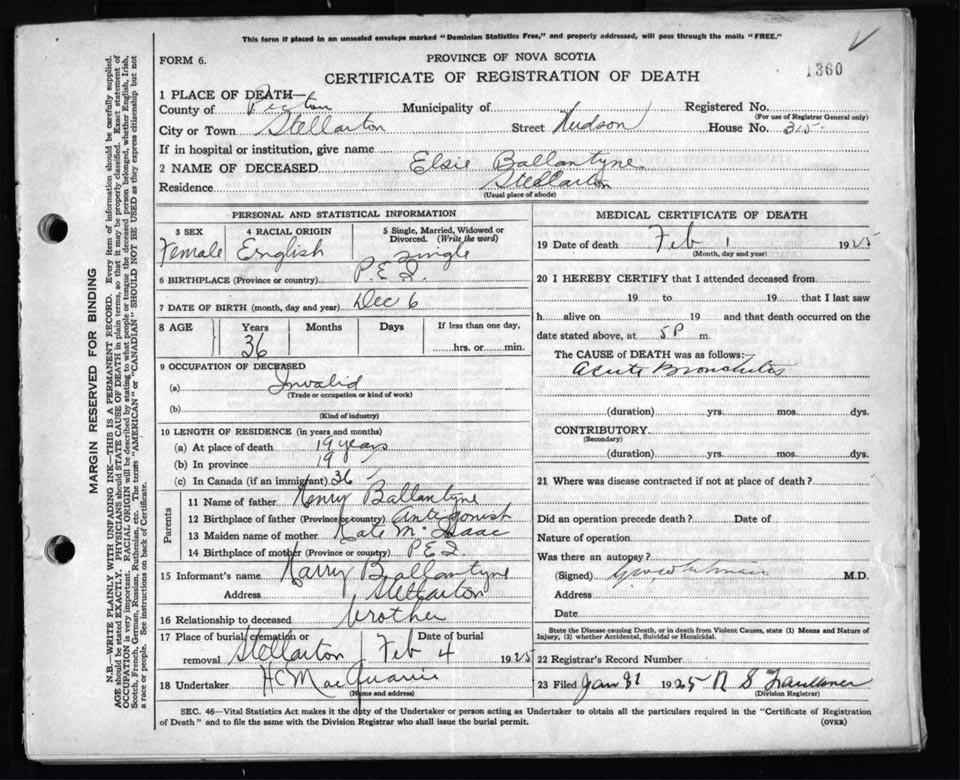 This form if placed in an unsealed envelope marked "Dominion Statistics Free," and properly addressed, will pass through the mails "FREE."
FORM 6.
PROVINCE OF NOVA SCOTIA
CERTIFICATE OF REGISTRATION OF DEATH
1360
1 PLACE OF DEATH—
County of Pictou Municipality of Registered No.
(For use of Registrar General only)
City or Town Stellarton Street Hudson House No. 315
If in hospital or institution, give name
2 NAME OF DECEASED Elsie Ballantyne
Residence Stellarton
(Usual place of abode)
MARGIN RESERVED FOR BINDING
N.B.—WRITE PLAINLY WITH UNFADING INK—THIS IS A PERMANENT RECORD. Every item of information should be carefully supplied.
AGE should be stated EXACTLY. PHYSICIANS should STATE CAUSE OF DEATH in plain terms, so that it may be properly classified. Exact statement of
OCCUPATION is very important. RACIAL ORIGIN will be described by stating to what people or tongue the deceased person belonged, whether English, Irish,
Scotch, French, German, Russian, Ruthenian, etc. The terms "AMERICAN" or "CANADIAN" SHOULD NOT BE USED as they express citizenship but not
a race or people. See instructions on back of Certificate.
PERSONAL AND STATISTICAL INFORMATION
3 SEX 4 RACIAL ORIGIN 5 Single, Married, Widowed or
Divorced. (Write the word)
Female English Single
6 BIRTHPLACE (Province or country) P.E.I.
7 DATE OF BIRTH (month, day and year) Dec 6
8 AGE Years Months Days If less than one day,
36 hrs. or min.
9 OCCUPATION OF DECEASED
(a) Invalid
(Trade or occupation or kind of work)
(b)
(Kind of industry)
10 LENGTH OF RESIDENCE (in years and months)
(a) At place of death 19 years
(b) In province 19
(c) In Canada (if an immigrant) 36
Parents
11 Name of father Henry Ballantyne
12 Birthplace of father (Province or country) Antigonish
13 Maiden name of mother Kate Mc Isaac
14 Birthplace of mother (Province or country) P.E.I.
15 Informant's name Harry Ballantyne
Address Stellarton
16 Relationship to deceased brother
17 Place of burial, cremation or Date of burial
removal Stellarton Feb 4 1925
18 Undertaker H C MacQuarrie
(Name and address)
MEDICAL CERTIFICATE OF DEATH
19 Date of death Feb 1 1925
(Month, day and year)
20 I HEREBY CERTIFY that I attended deceased from
19 to 19 that I last saw
h alive on 19 and that death occurred on the
date stated above, at 5 P m.
The CAUSE OF DEATH was as follows:—
Acute Bronchitis
(duration) yrs. mos. dys.
CONTRIBUTORY
(Secondary)
(duration) yrs. mos. dys.
21 Where was disease contracted if not at place of death?
Did an operation precede death? Date of
Nature of operation
Was there an autopsy?
(Signed) M.D.
Address
Date
State the Disease causing Death, or in death from Violent Causes, state (1) Means and Nature of
Injury, (2) whether Accidental, Suicidal or Homicidal.
22 Registrar's Record Number
23 Filed Jan 31 1925 N S Faulkner
(Division Registrar)
SEC. 46—Vital Statistics Act makes it the duty of the Undertaker or person acting as Undertaker to obtain all the particulars required in the "Certificate of Registration
of Death" and to file the same with the Division Registrar who shall issue the burial permit. (OVER)